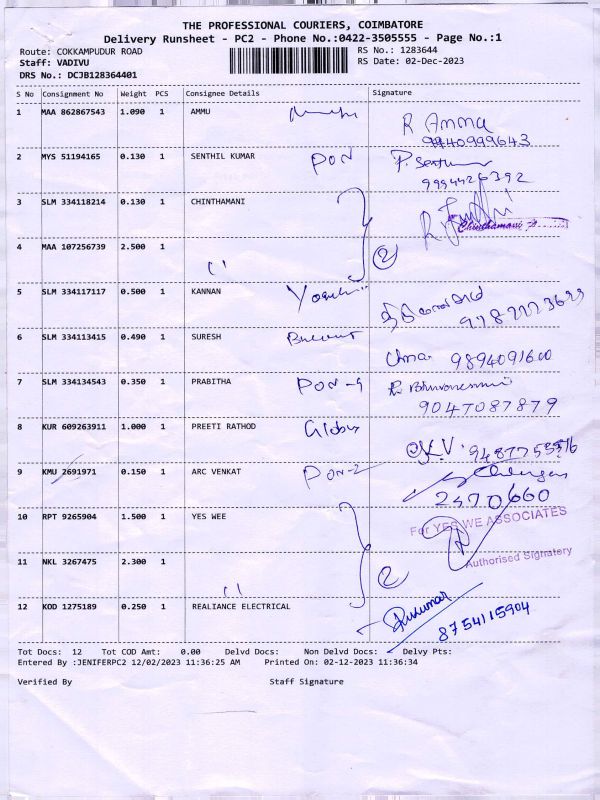 THE PROFESSIONAL COURIERS, COIMBATORE
Delivery Runsheet - PC2 - Phone No.:0422-3505555 - Page No.:1
Route: COKKAMPUDUR ROAD RS No.: 1283644
Staff: VADIVU RS Date: 02-Dec-2023
DRS No.: DCJB128364401
S No Consignment No Weight PCS Consignee Details Signature
1 MAA 862867543 1.090 1 AMMU R Amma
9940999643
2 MYS 51194165 0.130 1 SENTHIL KUMAR PON
9994426392
3 SLM 334118214 0.130 1 CHINTHAMANI
Chinthamani
4 MAA 107256739 2.500 1 2
5 SLM 334117117 0.500 1 KANNAN
6 SLM 334113415 0.490 1 SURESH
9894091600
7 SLM 334134543 0.350 1 PRABITHA PON-9
9047087879
8 KUR 609263911 1.000 1 PREETI RATHOD
9 KMU 2691971 0.150 1 ARC VENKAT PON-2
2470660
10 RPT 9265904 1.500 1 YES WEE For YES WE ASSOCIATES
11 NKL 3267475 2.300 1 2 Authorised Signatory
12 KOD 1275189 0.250 1 REALIANCE ELECTRICAL
8754115904
Tot Docs: 12 Tot COD Amt: 0.00 Delvd Docs: Non Delvd Docs: Delvy Pts:
Entered By :JENIFERPC2 12/02/2023 11:36:25 AM Printed On: 02-12-2023 11:36:34
Verified By Staff Signature